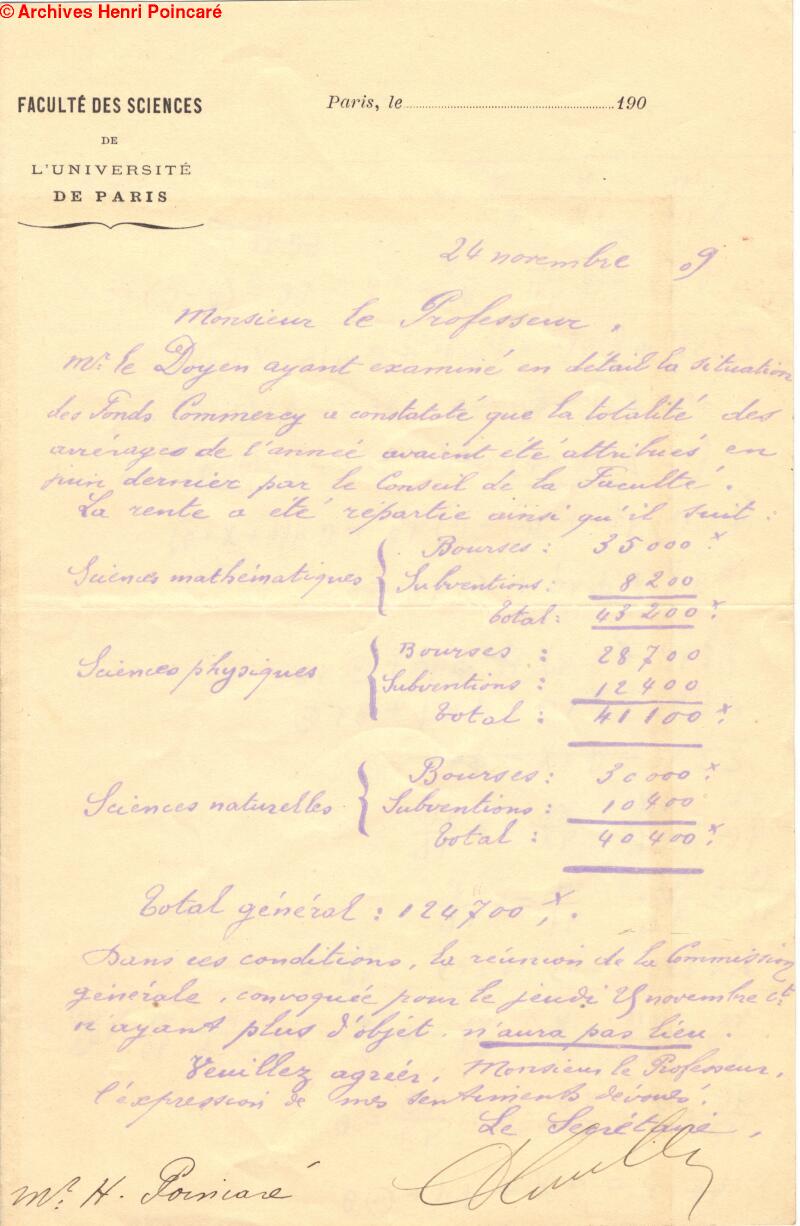 © Archives Henri Poincaré
FACULTÉ DES SCIENCES
DE
L'UNIVERSITÉ
DE PARIS
Paris, le 190
24 novembre 09
Monsieur le Professeur,
Mr. le Doyen ayant examiné en détail la situation
des Fonds Commercy a constataté que la totalité des
arrérages de l'année avaient été attribués en
juin dernier par le Conseil de la Faculté.
La rente a été répartie ainsi qu'il suit :
Sciences mathématiques { Bourses : 35 000 x
Subventions : 8 200
Total : 43 200 x
Sciences physiques { Bourses : 28 700
Subventions : 12 400
Total : 41 100 x
Sciences naturelles { Bourses : 30 000 x
Subventions : 10 400
Total : 40 400 x
Total général : 124 700 x.
Dans ces conditions, la réunion de la Commission
générale, convoquée pour le jeudi 25 novembre ct.
n'ayant plus d'objet, n'aura pas lieu.
Veuillez agréer, Monsieur le Professeur,
l'expression de mes sentiments dévoués.
Le Secrétaire,
Mr. H. Poincaré